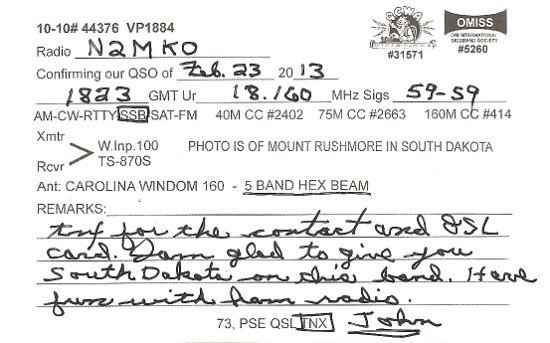 10-10# 44376 VP1884
CCWA
#31571
OMISS
OMI INTERNATIONAL
SIDEBAND SOCIETY
#5260
Radio N2MKO
Confirming our QSO of Feb. 23 2013
1823 GMT Ur 18.160 MHz Sigs 59-59
AM-CW-RTTY-SSB-SAT-FM 40M CC #2402 75M CC #2663 160M CC #414
Xmtr
W.Inp.100 PHOTO IS OF MOUNT RUSHMORE IN SOUTH DAKOTA
TS-870S
Rcvr
Ant: CAROLINA WINDOM 160 - 5 BAND HEX BEAM
REMARKS:
tnx for the contact and QSL
card. I am glad to give you
South Dakota on this band. Have
fun with ham radio.
73, PSE QSL TNX John